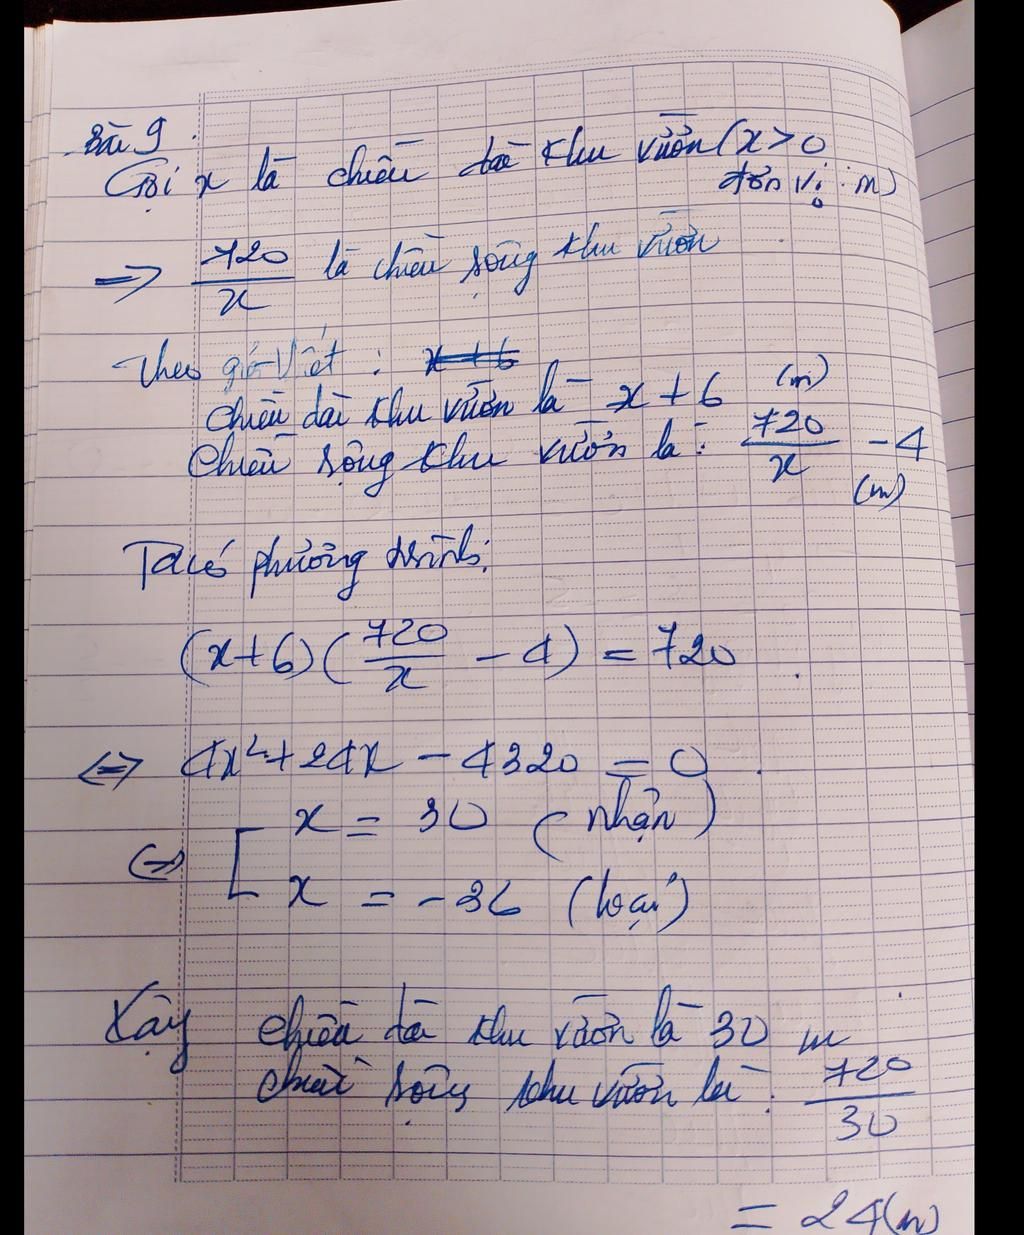 Bài 9.
Gọi x là chiều dài khu vườn (x > 0
đơn vị : m)
=> 720/x là chiều rộng khu vườn
Theo giả thiết : x + 6
chiều dài khu vườn là x + 6 (m)
Chiều rộng khu vườn là : 720/x - 4
(m)
Ta có phương trình:
(x+6)(720/x - 4) = 720
<=> 4x² + 24x - 4320 = 0
<=> [ x = 30 (nhận)
x = -36 (loại)
Vậy chiều dài khu vườn là 30 m
chiều rộng khu vườn là : 720/30
= 24(m)